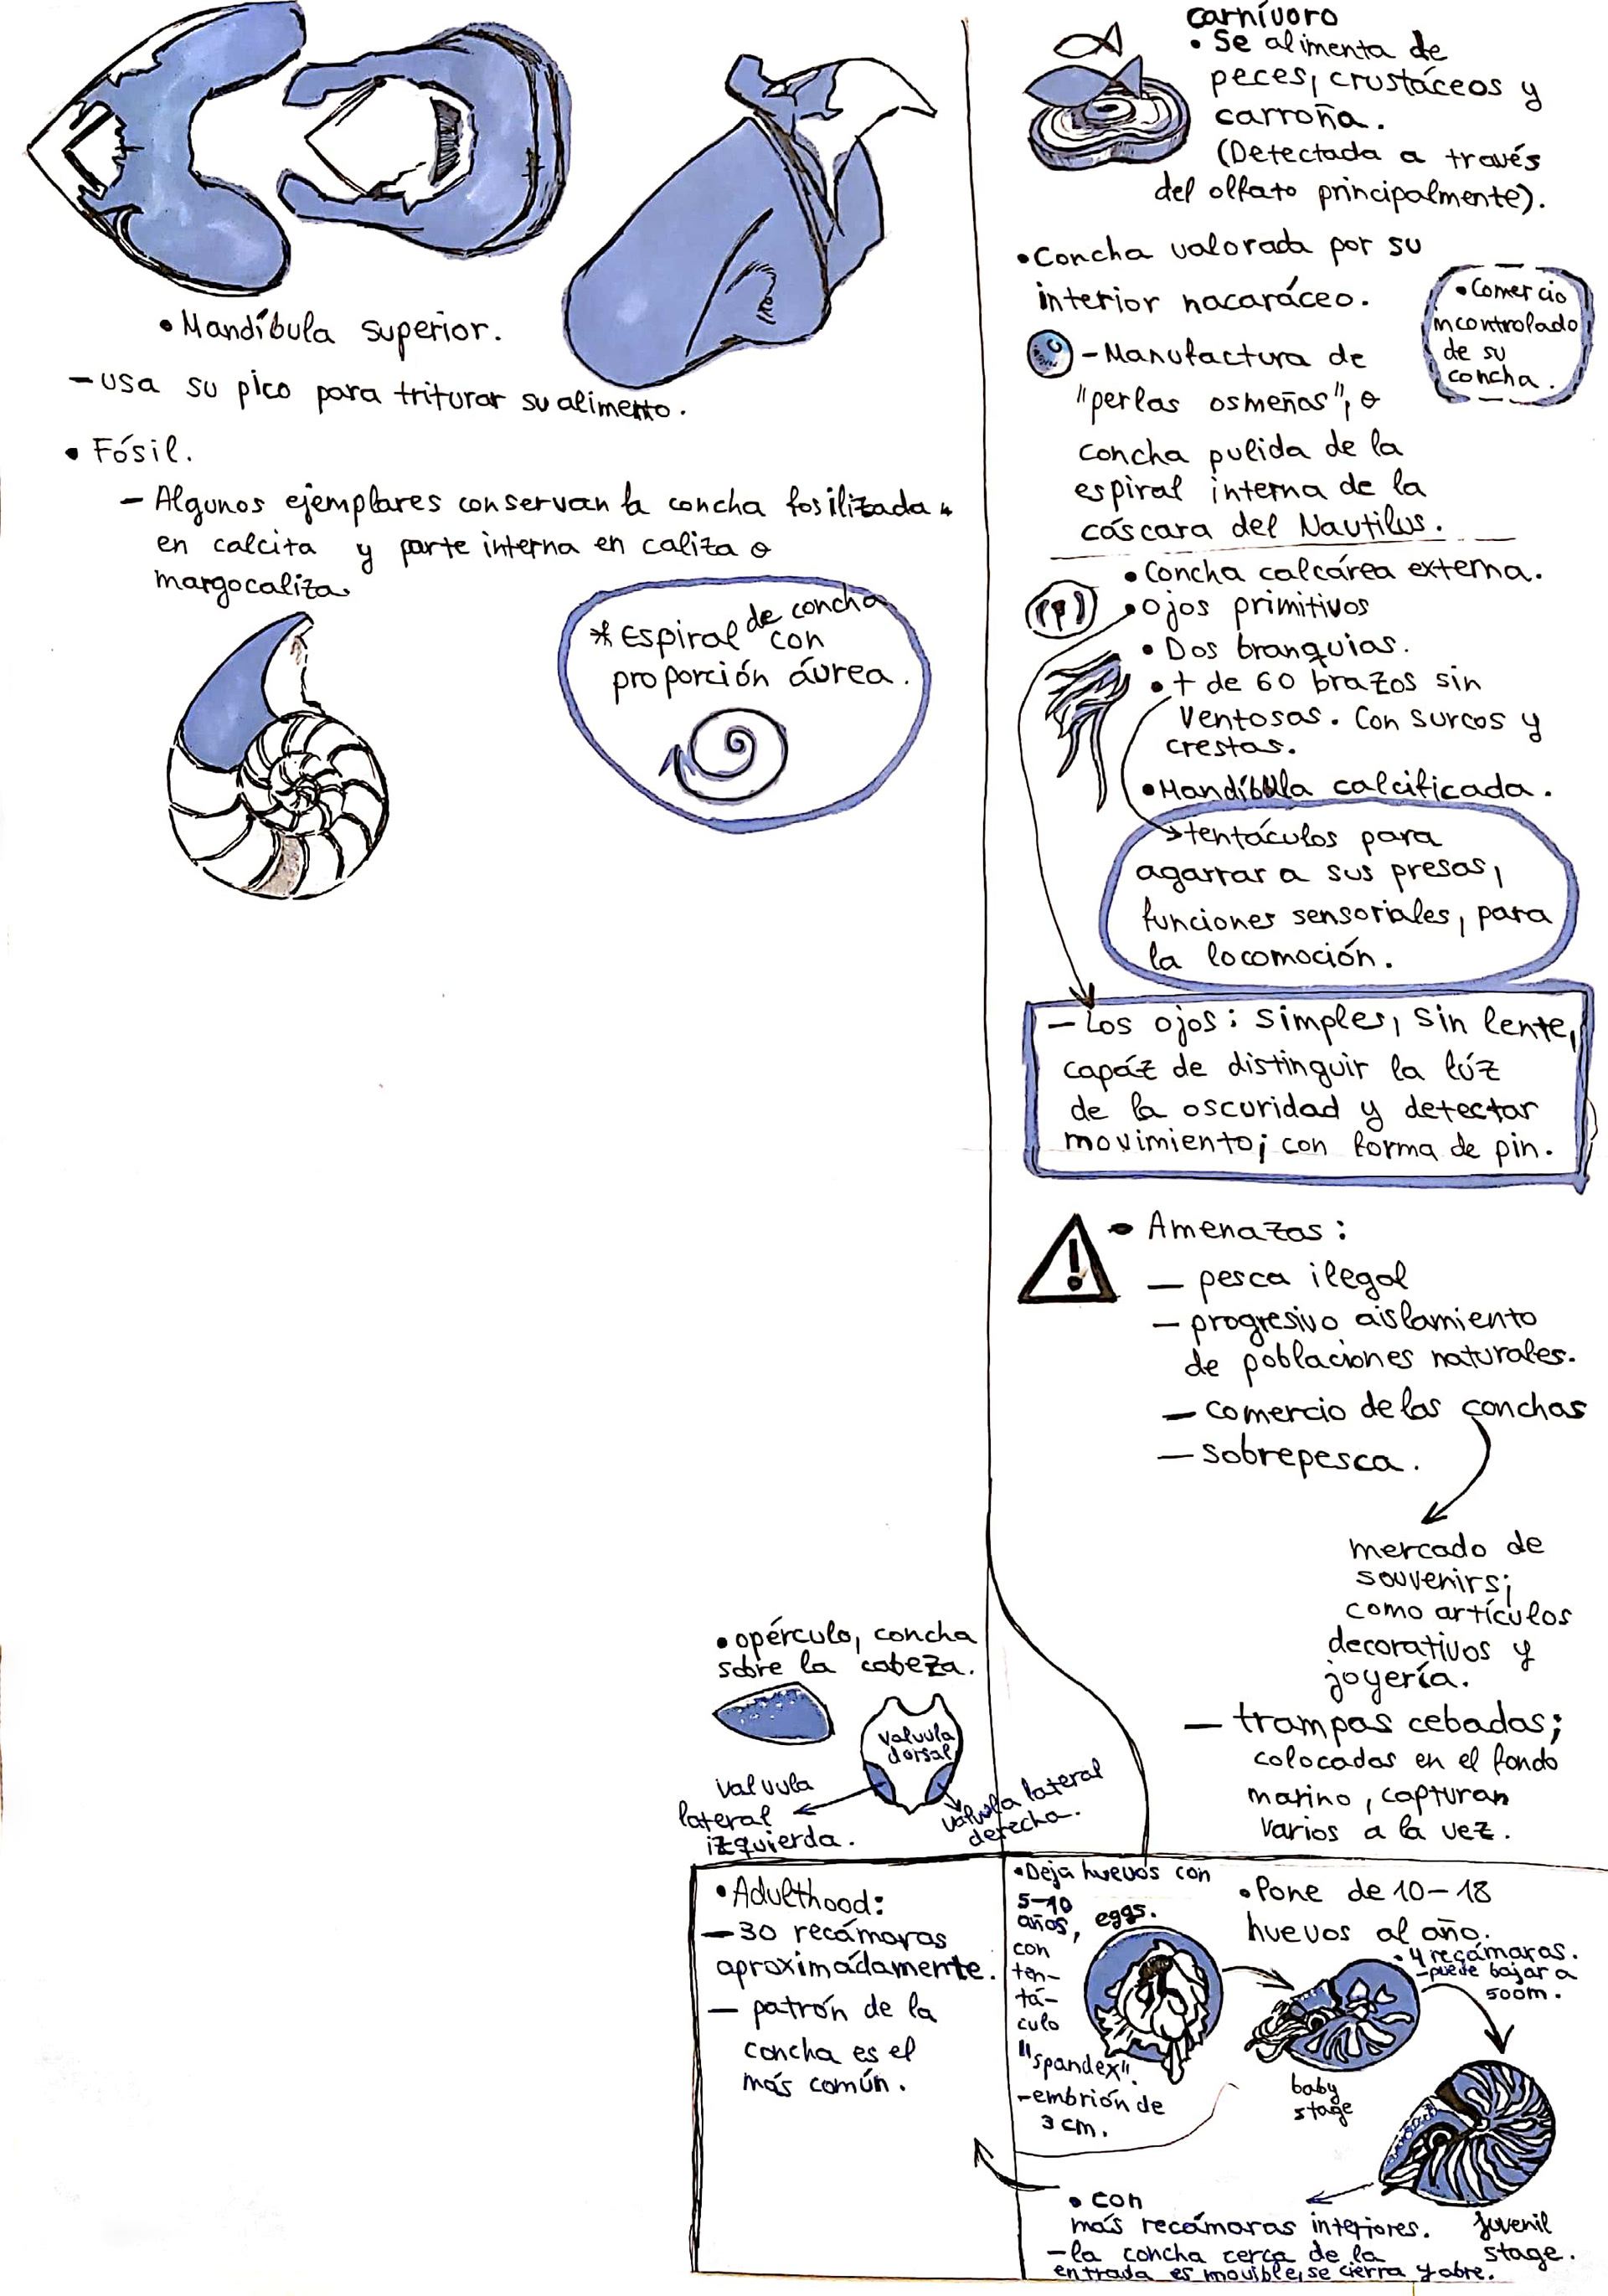 • Mandíbula superior.
- usa su pico para triturar su alimento.
• Fósil.
- Algunos ejemplares conservan la concha fosilizada
en calcita y parte interna en caliza o
margocaliza.
* Espiral de concha
con
proporción áurea.
carnívoro
• Se alimenta de
peces, crustáceos y
carroña.
(Detectada a través
del olfato principalmente).
• Concha valorada por su
interior nacaráceo.
• Comercio
incontrolado
de su
concha.
- Manufactura de
"perlas osmeñas", o
concha pulida de la
espiral interna de la
cáscara del Nautilus.
• Concha calcárea externa.
• ojos primitivos
• Dos branquias.
• + de 60 brazos sin
ventosas. Con surcos y
crestas.
• Mandíbula calcificada.
tentáculos para
agarrar a sus presas,
funciones sensoriales, para
la locomoción.
- Los ojos: simples, sin lente,
capáz de distinguir la lúz
de la oscuridad y detectar
movimiento; con forma de pin.
!
• Amenazas:
- pesca ilegal
- progresivo aislamiento
de poblaciones naturales.
- comercio de las conchas
- sobrepesca.
mercado de
souvenirs;
como artículos
decorativos y
joyería.
- trampas cebadas;
colocadas en el fondo
marino, capturan
varios a la vez.
• opérculo, concha
sobre la cabeza.
valvula
dorsal
valvula
lateral
izquierda.
valvula lateral
derecha.
• Adulthood:
- 30 recámaras
aproximádamente.
- patrón de la
concha es el
más común.
• Deja huevos con
5-10
años,
con
ten-
tá-
culo
"spandex".
- embrión de
3 cm.
eggs.
• Pone de 10-18
huevos al año.
• 4 recámaras.
- puede bajar a
500m.
baby
stage
juvenil
stage.
• con
más recámaras interiores.
- la concha cerca de la
entrada es movible, se cierra y abre.